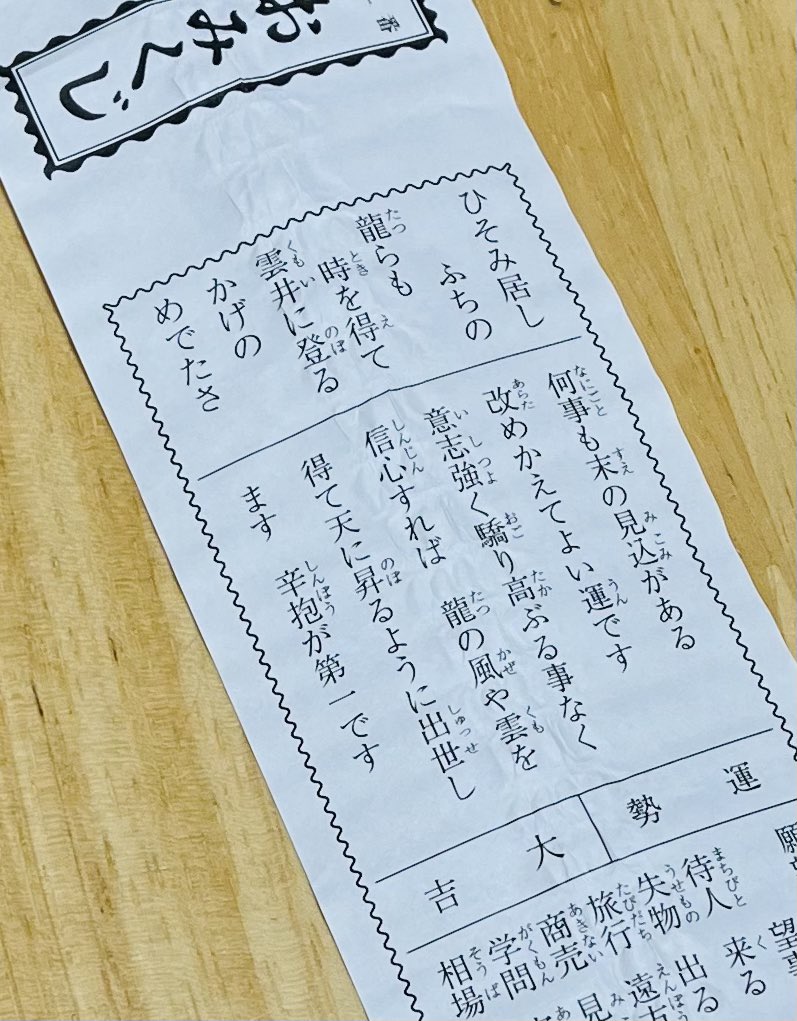 番
おみくじ
ひそみ居し
ふちの
龍らも
時を得て
雲井に登る
かげの
めでたさ
何事も末の見込がある
改めかえてよい運です
意志強く驕り高ぶる事なく
信心すれば 龍の風や雲を
得て天に昇るように出世し
ます 辛抱が第一です
運勢
大吉
願望
待人 来る
失物 出る
旅行 遠方
商売 見
学問
相場